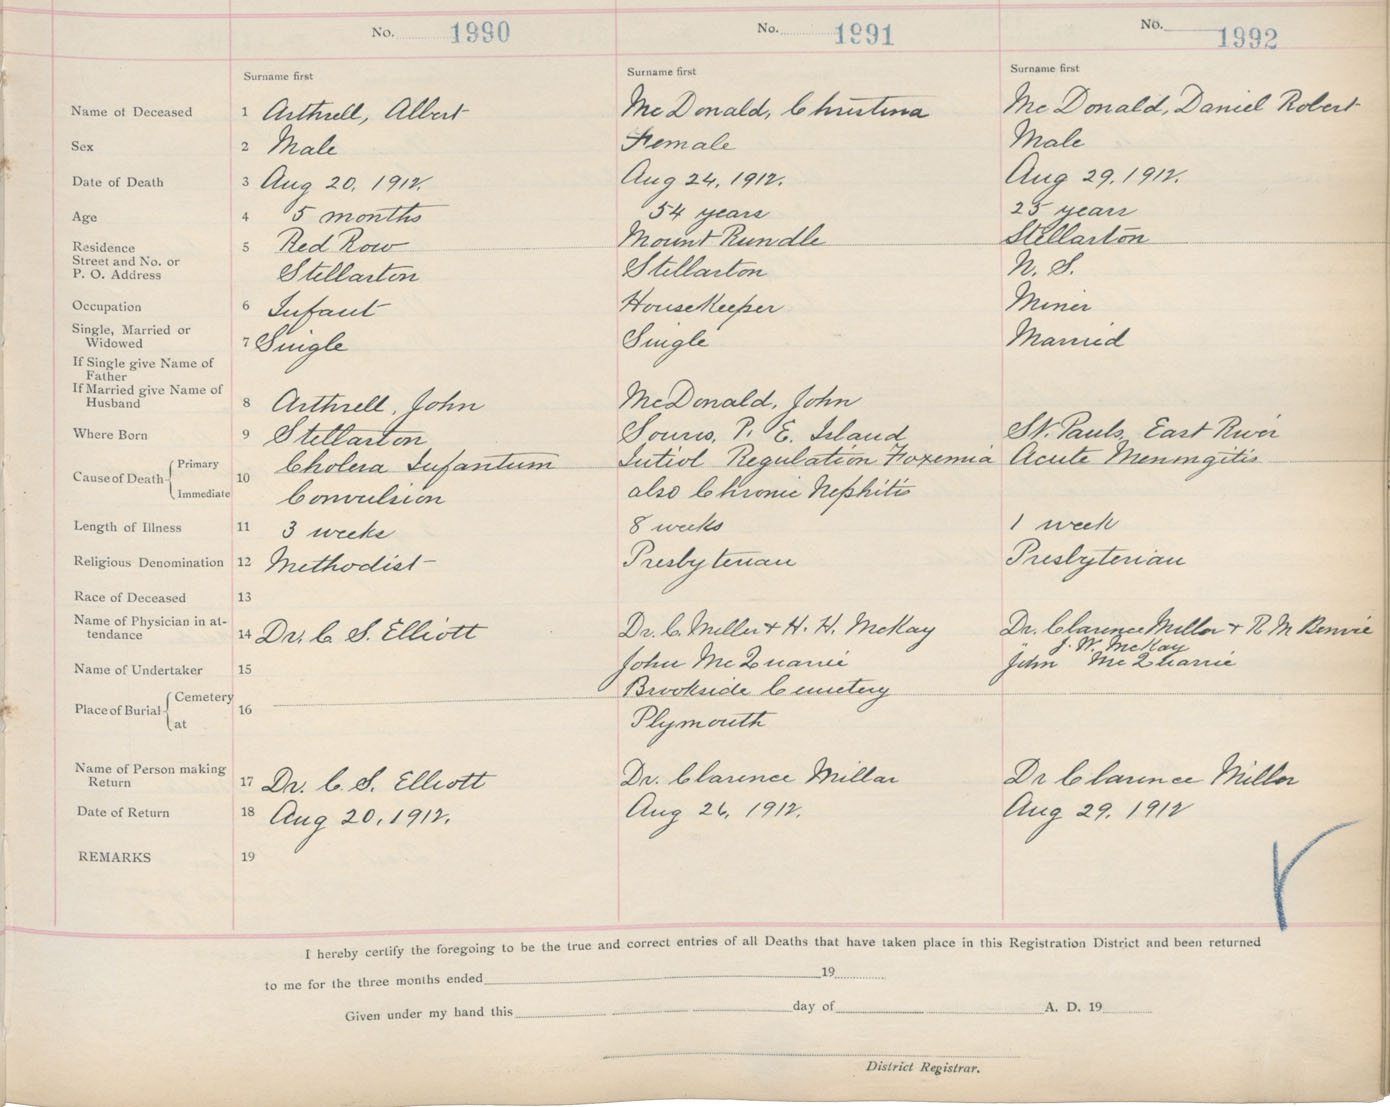 No. 1990 No. 1991 No. 1992
Surname first Surname first Surname first
Name of Deceased 1 Arthrell, Albert McDonald, Christina McDonald, Daniel Robert
Sex 2 Male Female Male
Date of Death 3 Aug 20, 1912. Aug 24, 1912. Aug 29, 1912.
Age 4 5 months 54 years 25 years
Residence 5 Red Row Mount Rundle Stellarton
Street and No. or
P. O. Address Stellarton Stellarton N. S.
Occupation 6 Infant HouseKeeper Miner
Single, Married or
Widowed 7 Single Single Married
If Single give Name of
Father
If Married give Name of
Husband 8 Arthrell, John McDonald, John
Where Born 9 Stellarton Souris, P. E. Island St. Pauls, East River
Cause of Death Primary 10 Cholera Infantum Regulation Acute Meningitis
Immediate Convulsion also Chronic Nephitis
Length of Illness 11 3 weeks 8 weeks 1 week
Religious Denomination 12 Methodist Presbyterian Presbyterian
Race of Deceased 13
Name of Physician in at-
tendance 14 Dr. C. S. Elliott Dr. C. Miller + H. H. McKay Dr. Clarence Miller + R M Benvie
J. W. McKay
Name of Undertaker 15 John McQuarrie John McQuarrie
Place of Burial Cemetery 16 Brookside Cemetery
at Plymouth
Name of Person making
Return 17 Dr. C. S. Elliott Dr. Clarence Millar Dr Clarence Miller
Date of Return 18 Aug 20, 1912. Aug 26, 1912. Aug 29, 1912
REMARKS 19
I hereby certify the foregoing to be the true and correct entries of all Deaths that have taken place in this Registration District and been returned
to me for the three months ended 19
Given under my hand this day of A. D. 19
District Registrar.